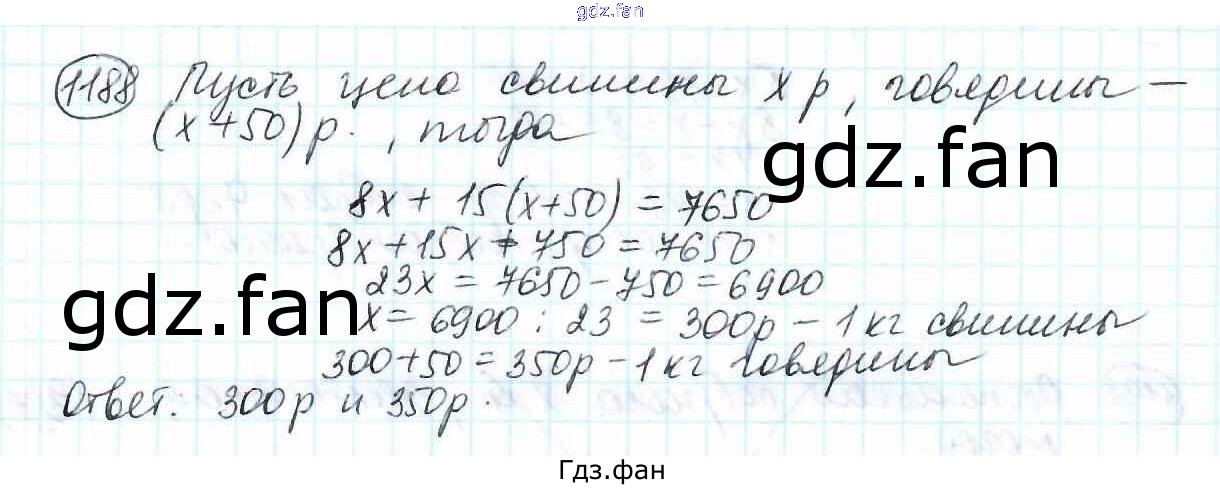 gdz.fan
1188 Пусть цена свинины x р, говядины —
(x+50) р. , тогда
gdz.fan
8x + 15(x+50) = 7650
8x + 15x + 750 = 7650
23x = 7650 - 750 = 6900
gdz.fan
x = 6900 : 23 = 300р - 1 кг свинины
300+50 = 350р - 1 кг говядины
Ответ. 300р и 350р.
Гдз.фан